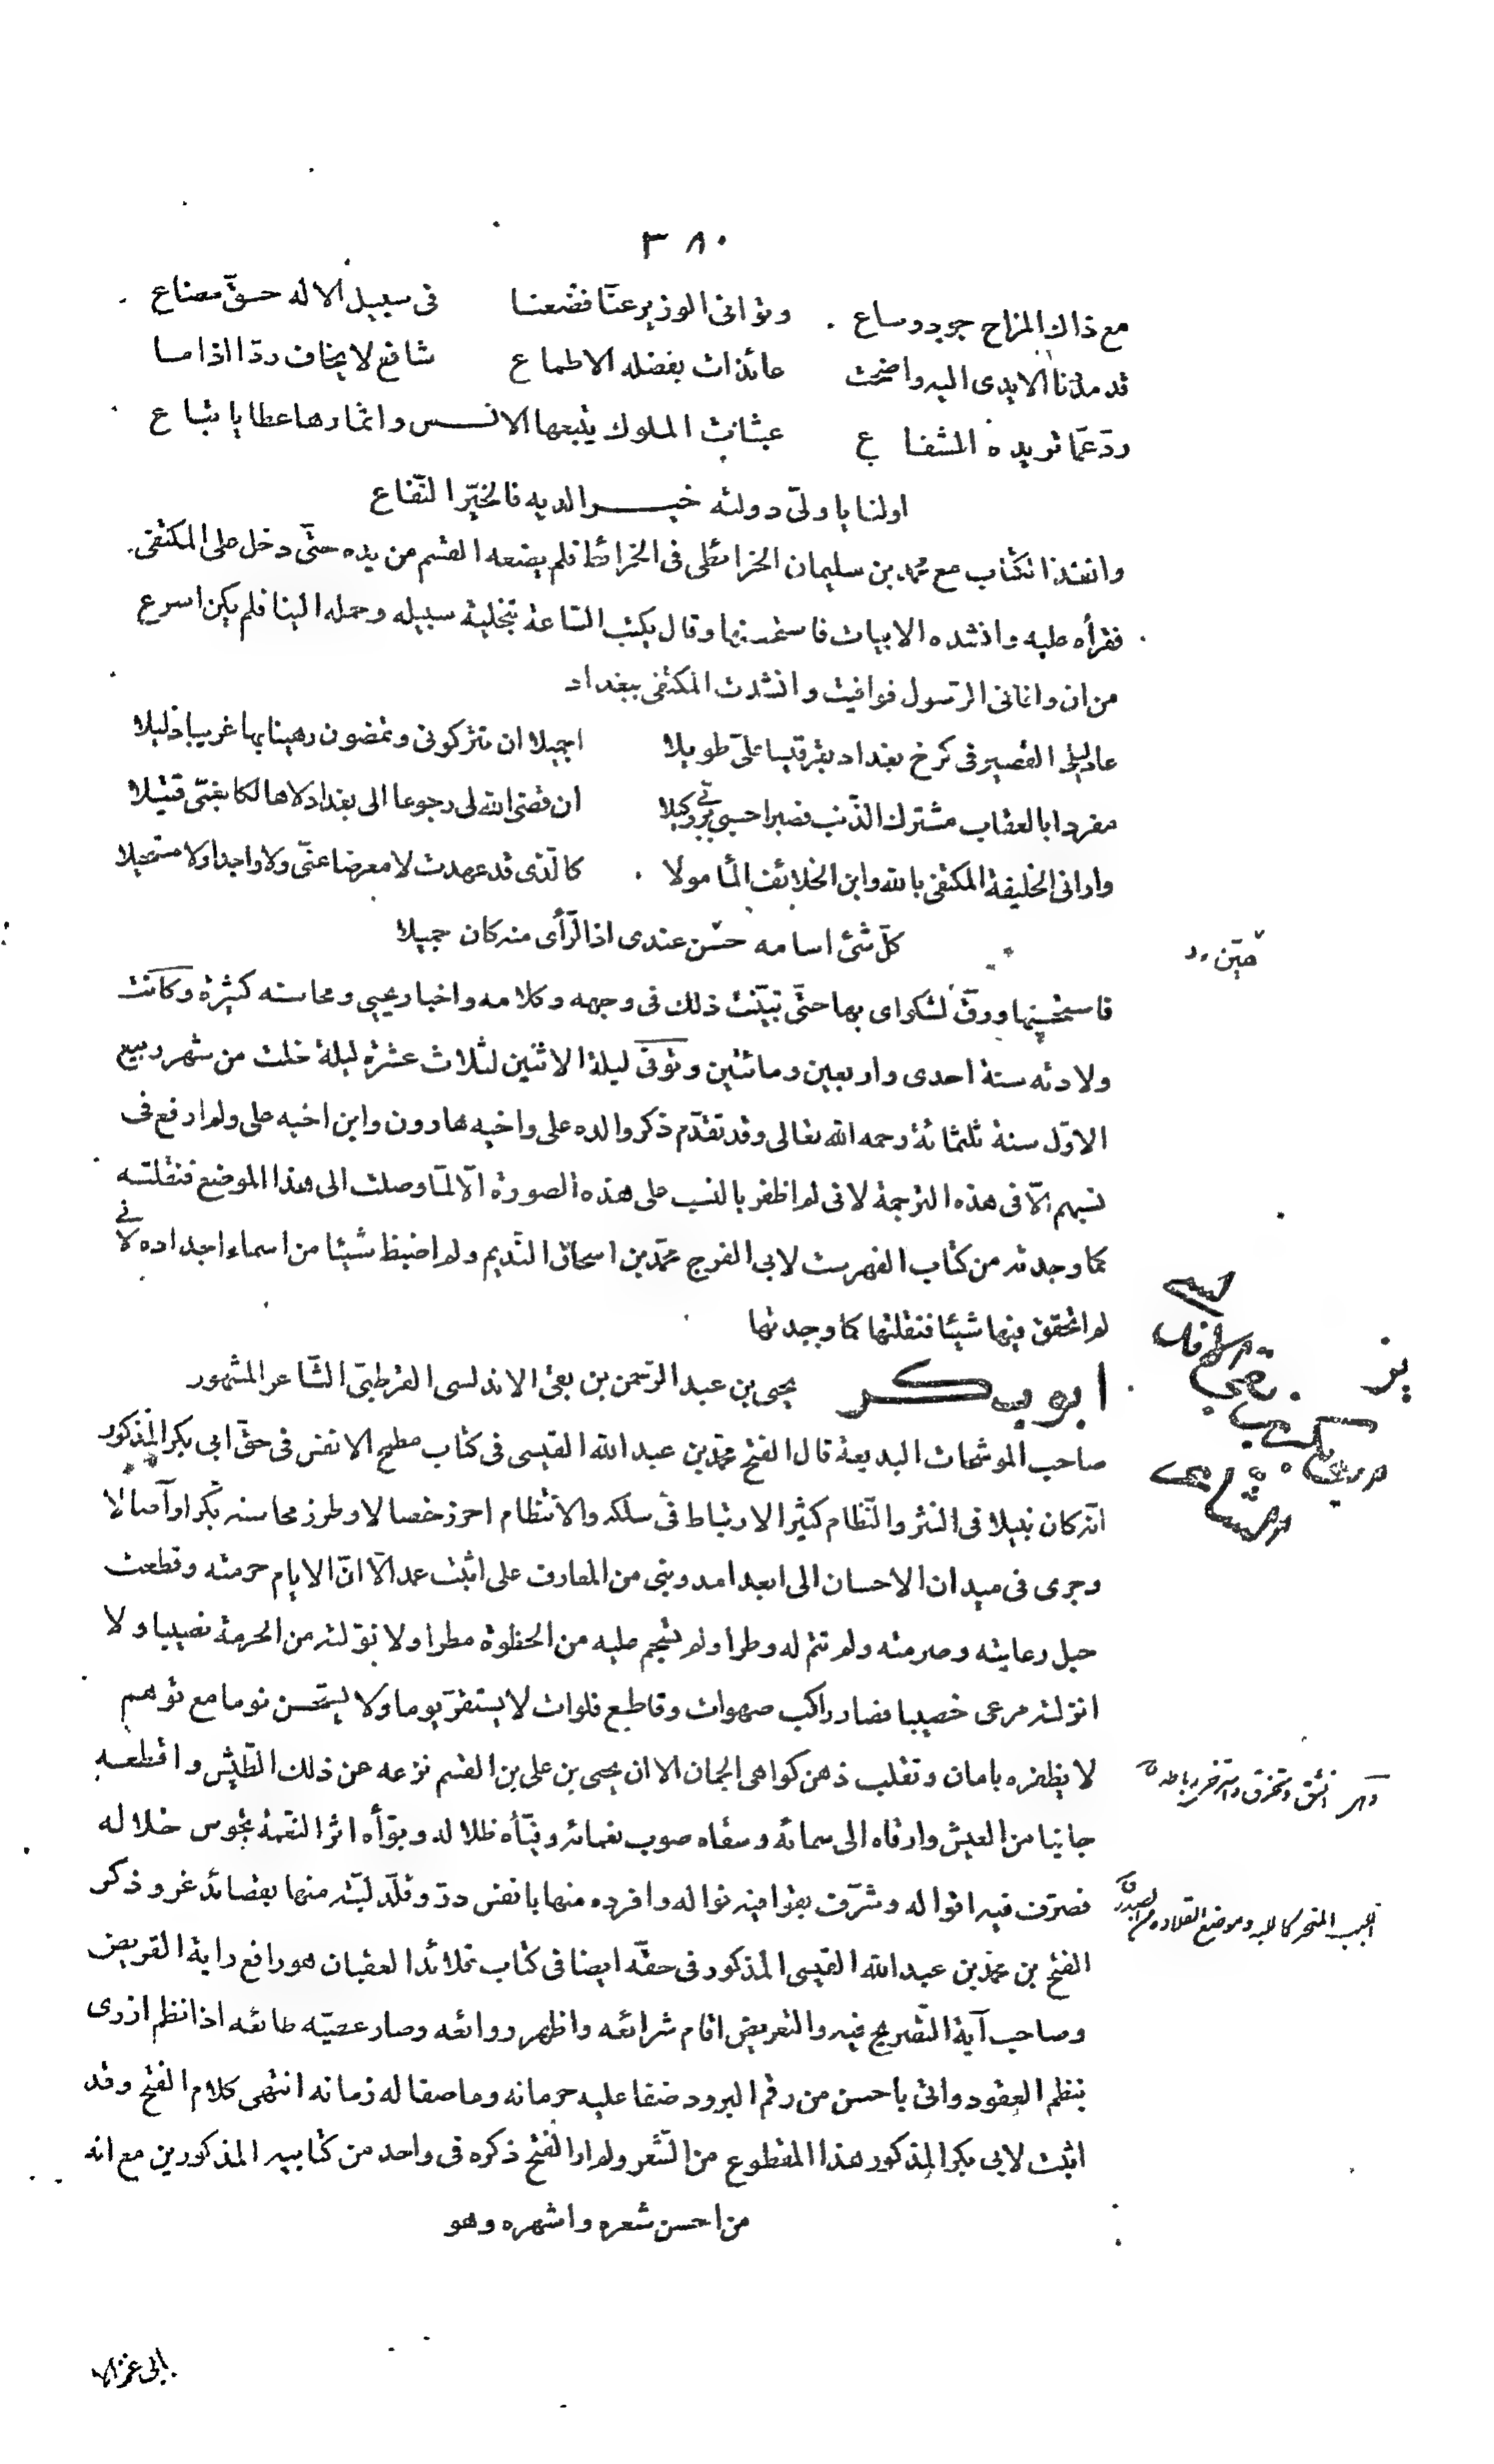 ٣٨٠
مع ذاك المزاح جويد وساع وتوانى الوزير عنّا فضعنا فى سبيل الاله حقّ مضاع
قد مددنا الايدى اليه واضحت عائذات بفضله الاطماع شافع لا يخاف ردّا اذا ما
ردّ عمّا تريده الشفاع عثانين الملوك يتبعها الانس واثمارها عطايا تباع
اولنا يا ولىّ دولته خيرا لديه فالخيّر النّفاع
وانفذ الكتاب مع محمد بن سليمان الخرائطى فى الخرائط فلم يضعه القسم من يده حتّى دخل على المكتفى
فقرأه عليه وانشده الابيات فاستحسنها وقال يكتب السّاعة بتخلية سبيله وحمله الينا فلم يكن اسرع
من ان وافانى الرّسول فوافيت وانشدت المكتفى ببغداد
عاد ليلى القصير فى كرخ بغداد بقرقيسيا علىّ طويلا اجميلا ان تتركونى وتمضون رهينا بها غريبا ذليلا
مفردا بالعقاب مشترك الذّنب فصبرا حسبى بربى وكيلا ان قضى الله لى رجوعا الى بغداد لا هالكا بغمّى قتيلا
وارانى الخليفة المكتفى بالله وابن الخلائف المأمولا كالّذى قد عهدت لا معرضا عنّى ولا واجدا ولا مستحيلا
كلّ شئ اسامه حسن عندى اذا الرّأى منه كان جميلا
هيّن
فاستحسنها ورقّ لشكواى بها حتّى تبيّنت ذلك فى وجهه وكلامه واخبار يحيى ومحاسنه كثيرة وكانت
ولادته سنة احدى واربعين ومائتين وتوفى ليلة الاثنين لثلاث عشرة ليلة خلت من شهر ربيع
الاوّل سنة ثلثمائة رحمه الله تعالى وقد تقدّم ذكر والده على واخيه هارون وابن اخيه على ولم ارفع فى
نسبهم الّا فى هذه الترجمة لانى لم اظفر بالنسب على هذه الصورة الّا لمّا وصلت الى هذا الموضع فنقلته
كما وجدته من كتاب الفهرست لابى الفرج محمّد بن اسحاق النّديم ولم اضبط شيئا من اسماء اجداده لانى
لم اتحقق فيها شيئا فنقلتها كما وجدتها
ابو بكر يحيى بن عبد الرّحمن بن بقى الاندلسى القرطبىّ الشّاعر المشهور
صاحب الموشحات البديعة قال الفتح محمّد بن عبد الله القيسى فى كتاب مطمح الانفس فى حقّ ابى بكر المذكور
انّه كان نبيلا فى النثر والنّظام كثير الارتباط فى سلكه والانتظام احرز خصالا وطرز محاسنه بكرا وآصالا
وجرى فى ميدان الاحسان الى ابعد امد وبنى من المعارف على اثبت عمد الّا انّ الايام حرمته وقطعت
حبل رعايته وصرمته ولم تتم له وطرا ولم تسجم عليه من الحظوة مطرا ولا نوّلته من الحرمة نصيبا ولا
انزلته مرعى خصيبا فصار راكب صهوات وقاطع فلوات لا يستقرّ يوما ولا يستحسن نوما مع توهم
لا يظفره بامان وتقلب ذهن كواهى الجمان الا ان يحيى بن على بن القسم نزعه عن ذلك الطّيش واقطعه
جانبا من العيش وارقاه الى سمائه وسقاه صوب نعمائه وفيّأه ظلاله وبوّأه اثر النعمة يجوس خلاله
فصرّف فيه اقواله وشرّف بقوافيه نواله وافرده منها بانفس درّ وقلّد لبّته منها بقصائد غر وذكر
الفتح بن محمد بن عبد الله القيسى المذكور فى حقّه ايضا فى كتاب قلائد العقيان هو رافع راية القريض
وصاحب آية التّصريح فيه والتعريض اقام شرائعه واظهر روائعه وصار عصيّه طائعه اذا نظم ازرى
بنظم العقود واتى باحسن من رقم البرود ضفا عليه حرمانه وما صفا له زمانه انتهى كلام الفتح وقد
اثبت لابى بكر المذكور هذا المقطوع من الشّعر ولم ار الفتح ذكره فى واحد من كتابيه المذكورين مع انه
من احسن شعره واشهره وهو